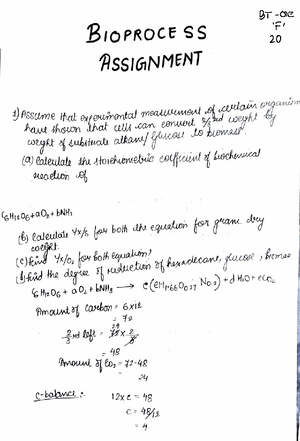 BT-
'F'
20
BIOPROCESS
ASSIGNMENT
1) Assume that experimental measurement of certain organism
have shown that cells can convert 2/3rd weight by
weight of substrate alkane/glucose to biomass.
(a) Calculate the stoichiometric coefficient of biochemical
reaction of
C6H12O6 + aO2 + bNH3
(b) Calculate Yx/s for both the equation for gram dry
(c) Find Yx/O2 for both equation,
(d) find the degree of reduction of hexadecane, glucose,
C6H12O6 + aO2 + bNH3 → c( ) + dH2O + eCO2
Amount of Carbon = 6×12
= 72
2/3rd left = 72×2/3
= 48
Amount of CO2 = 72-48
= 24
C-balance :- 12×c = 48
c = 48/12
= 4